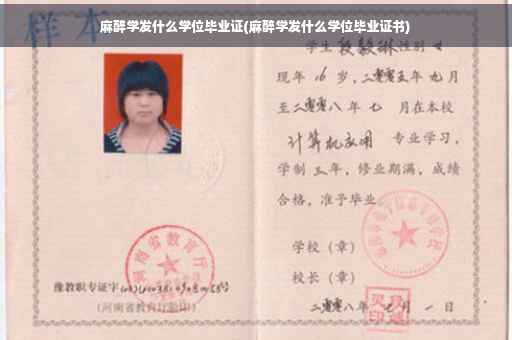 麻醉学发什么学位毕业证(麻醉学发什么学位毕业证书)
样本
学生段毅琳性别女
现年16岁，二零零五年九月
至二零零八年七月在本校
计算机应用专业学习，
学制三年，修业期满，成绩
合格，准予毕业。
学校（章）
校长（章）
二零零八年七月一日
河南省教育厅
豫教职专证字
(河南省教育厅验印)